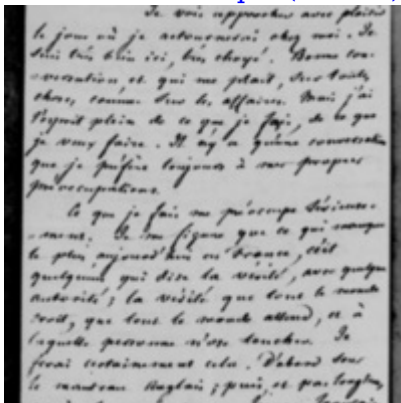 Je vois approcher avec plaisir
le jour où je retournerai chez moi. Je
suis très bien ici, très choyé. Bonne con-
versation, et qui me plait, sur toutes
choses, comme sur les affaires. Mais j'ai
l'esprit plein de ce que je fais, de ce que
je veux faire. Il n'y a qu'une conversation
que je préfère toujours à mes propres
préoccupations.
Ce que je fais me préoccupe sérieuse-
-ment. Je me figure que ce qui manque
le plus aujourd'hui en France, c'est
quelqu'un qui dise la vérité, avec quelque
autorité; la vérité que tout le monde
croit, que tout le monde attend, et à
laquelle personne n'ose toucher. Je
ferai certainement cela. D'abord sous
le manteau Anglais; puis, et pas longtems,